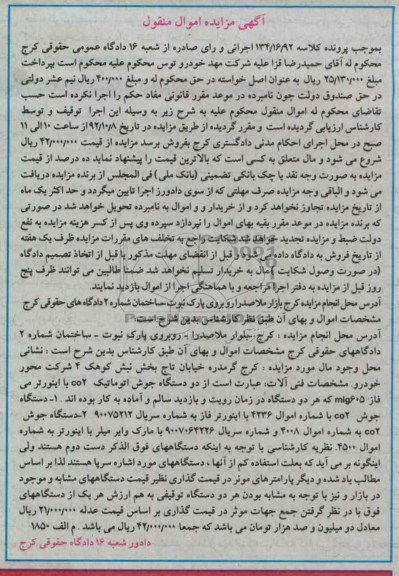 آگهی مزایده اموال منقول
بموجب پرونده کلاسه ۱۳۴/۱۶/۹۲ اجرائی و رای صادره از شعبه ۱۶ دادگاه عمومی حقوقی کرج
محکوم له آقای حمیدرضا قزا علیه شرکت مهد خودرو توس محکوم علیه محکوم است بپرداخت
مبلغ ۲۵/۱۳۰/۰۰۰ ریال به عنوان اصل خواسته در حق محکوم له و مبلغ ۴۰۰/۰۰۰ ریال نیم عشر دولتی
در حق صندوق دولت چون نامبرده در موعد مقرر قانونی مفاد حکم را اجرا نکرده است حسب
تقاضای محکوم له اموال منقول محکوم علیه به شرح زیر به وسیله این اجرا توقیف و توسط
کارشناس ارزیابی گردیده است و مقرر گردیده از طریق مزایده در تاریخ ۹۲/۱۰/۸ از ساعت ۱۰ الی ۱۱
صبح در محل اجرای احکام مدنی دادگستری کرج بفروش برسد مزایده از قیمت ۴۲/۰۰۰/۰۰۰ ریال
شروع می شود و مال متعلق به کسی است که بالاترین قیمت را پیشنهاد نماید ده درصد از قیمت
مزایده به صورت وجه نقد یا چک بانکی تضمینی (بانک ملی) فی المجلس از برنده مزایده دریافت
می شود و الباقی وجه مزایده صرف مهلتی که از سوی دادورز اجرا تایین میگردد و حد اکثر یک ماه
از تاریخ مزایده تجاوز نخواهد کرد و از خریدار و و اموال به نامبرده تحویل خواهد شد در صورتی
که برنده مزایده در موعد مقرر بقیه بهای اموال را نپردازد سپرده وی پس از کسر هزینه مزایده به نفع
دولت ضبط و مزایده تجدید خواهد شد شکایت راجع به تخلف های مقررات مزایده ظرف یک هفته
از تاریخ فروش به دادگاه داده می شود و قبل از انقضای مهلت مذکور یا قبل از اتخاذ تصمیم دادگاه
(در صورت وصول شکایت) مال به خریدار تسلیم نخواهد شد ضمنا طالبین می توانند ظرف پنج
روز قبل از مزایده به دفتر اجرا مراجعه و با هماهنگی اجرا از اموال بازدید نمایند.
آدرس محل انجام مزایده کرج بلوار ملاصدرا روبروی پارک نبوت ساختمان شماره ۲ دادگاه های حقوقی کرج
مشخصات اموال و بهای آن طبق نظر کارشناس بدین شرح است:
آدرس محل انجام مزایده : کرج – بلوار ملاصدرا – روبروی پارک نبوت – ساختمان شماره ۲
دادگاههای حقوقی کرج مشخصات اموال و بهای آن طبق کارشناس بدین شرح است : نشانی
محل وجود مال مورد مزایده : کرج گرمدره خیابان تاج بخش نبش کوهک ۴ شرکت محور
خودرو. مشخصات فنی آلات: عبارت است از دو دستگاه جوش اتوماتیک co۲ با اینورتر می
فاز: mig۶۰۵ که هر دو دستگاه در زمان رویت و بازدید سالم و آماده به کار بوده اند . ۱- دستگاه
جوش co۲ با شماره اموال ۴۲۳۶ با اینورتر فاز به شماره سریال ۹۰۰۷۵۲۱۲ ۲-دستگاه جوش
co۲ به شماره اموال ۴۰۰۸ و شماره سریال ۹۰۰۷۰۶۴۲۲۶ با مارک وایر میلر با اینورتر به شماره
اموال ۴۵۰۰. نظریه کارشناسی با توجه به اینکه دستگاههای فوق الذکر دست دوم هستند ولی
اینگونه بر می آید که بعلت استفاده کم از آنها ، دستگاههای مورد اشاره سرپا هستند لذا بر اساس
مطالب یاد شده و دیگر پارامترهای موثر در قیمت گذاری نظیر قیمت دستگاههای مشابه و موجود
در بازار و نیز با توجه به مشابه بودن هر دو دستگاه توقیفی به هم ارزش هر یک از دستگاههای
فوق با در نظر گرفتن جمع جهات موثر در قیمت گذاری بر اساس قیمت عدله ۲۱/۰۰۰/۰۰۰ ریال
معادل دو میلیون و صد هزار تومان می باشد که جمعا ۴۲/۰۰۰/۰۰۰ ریال می باشد . م الف ۱۸۵۰
دادورز شعبه ۱۶ دادگاه حقوقی کرج